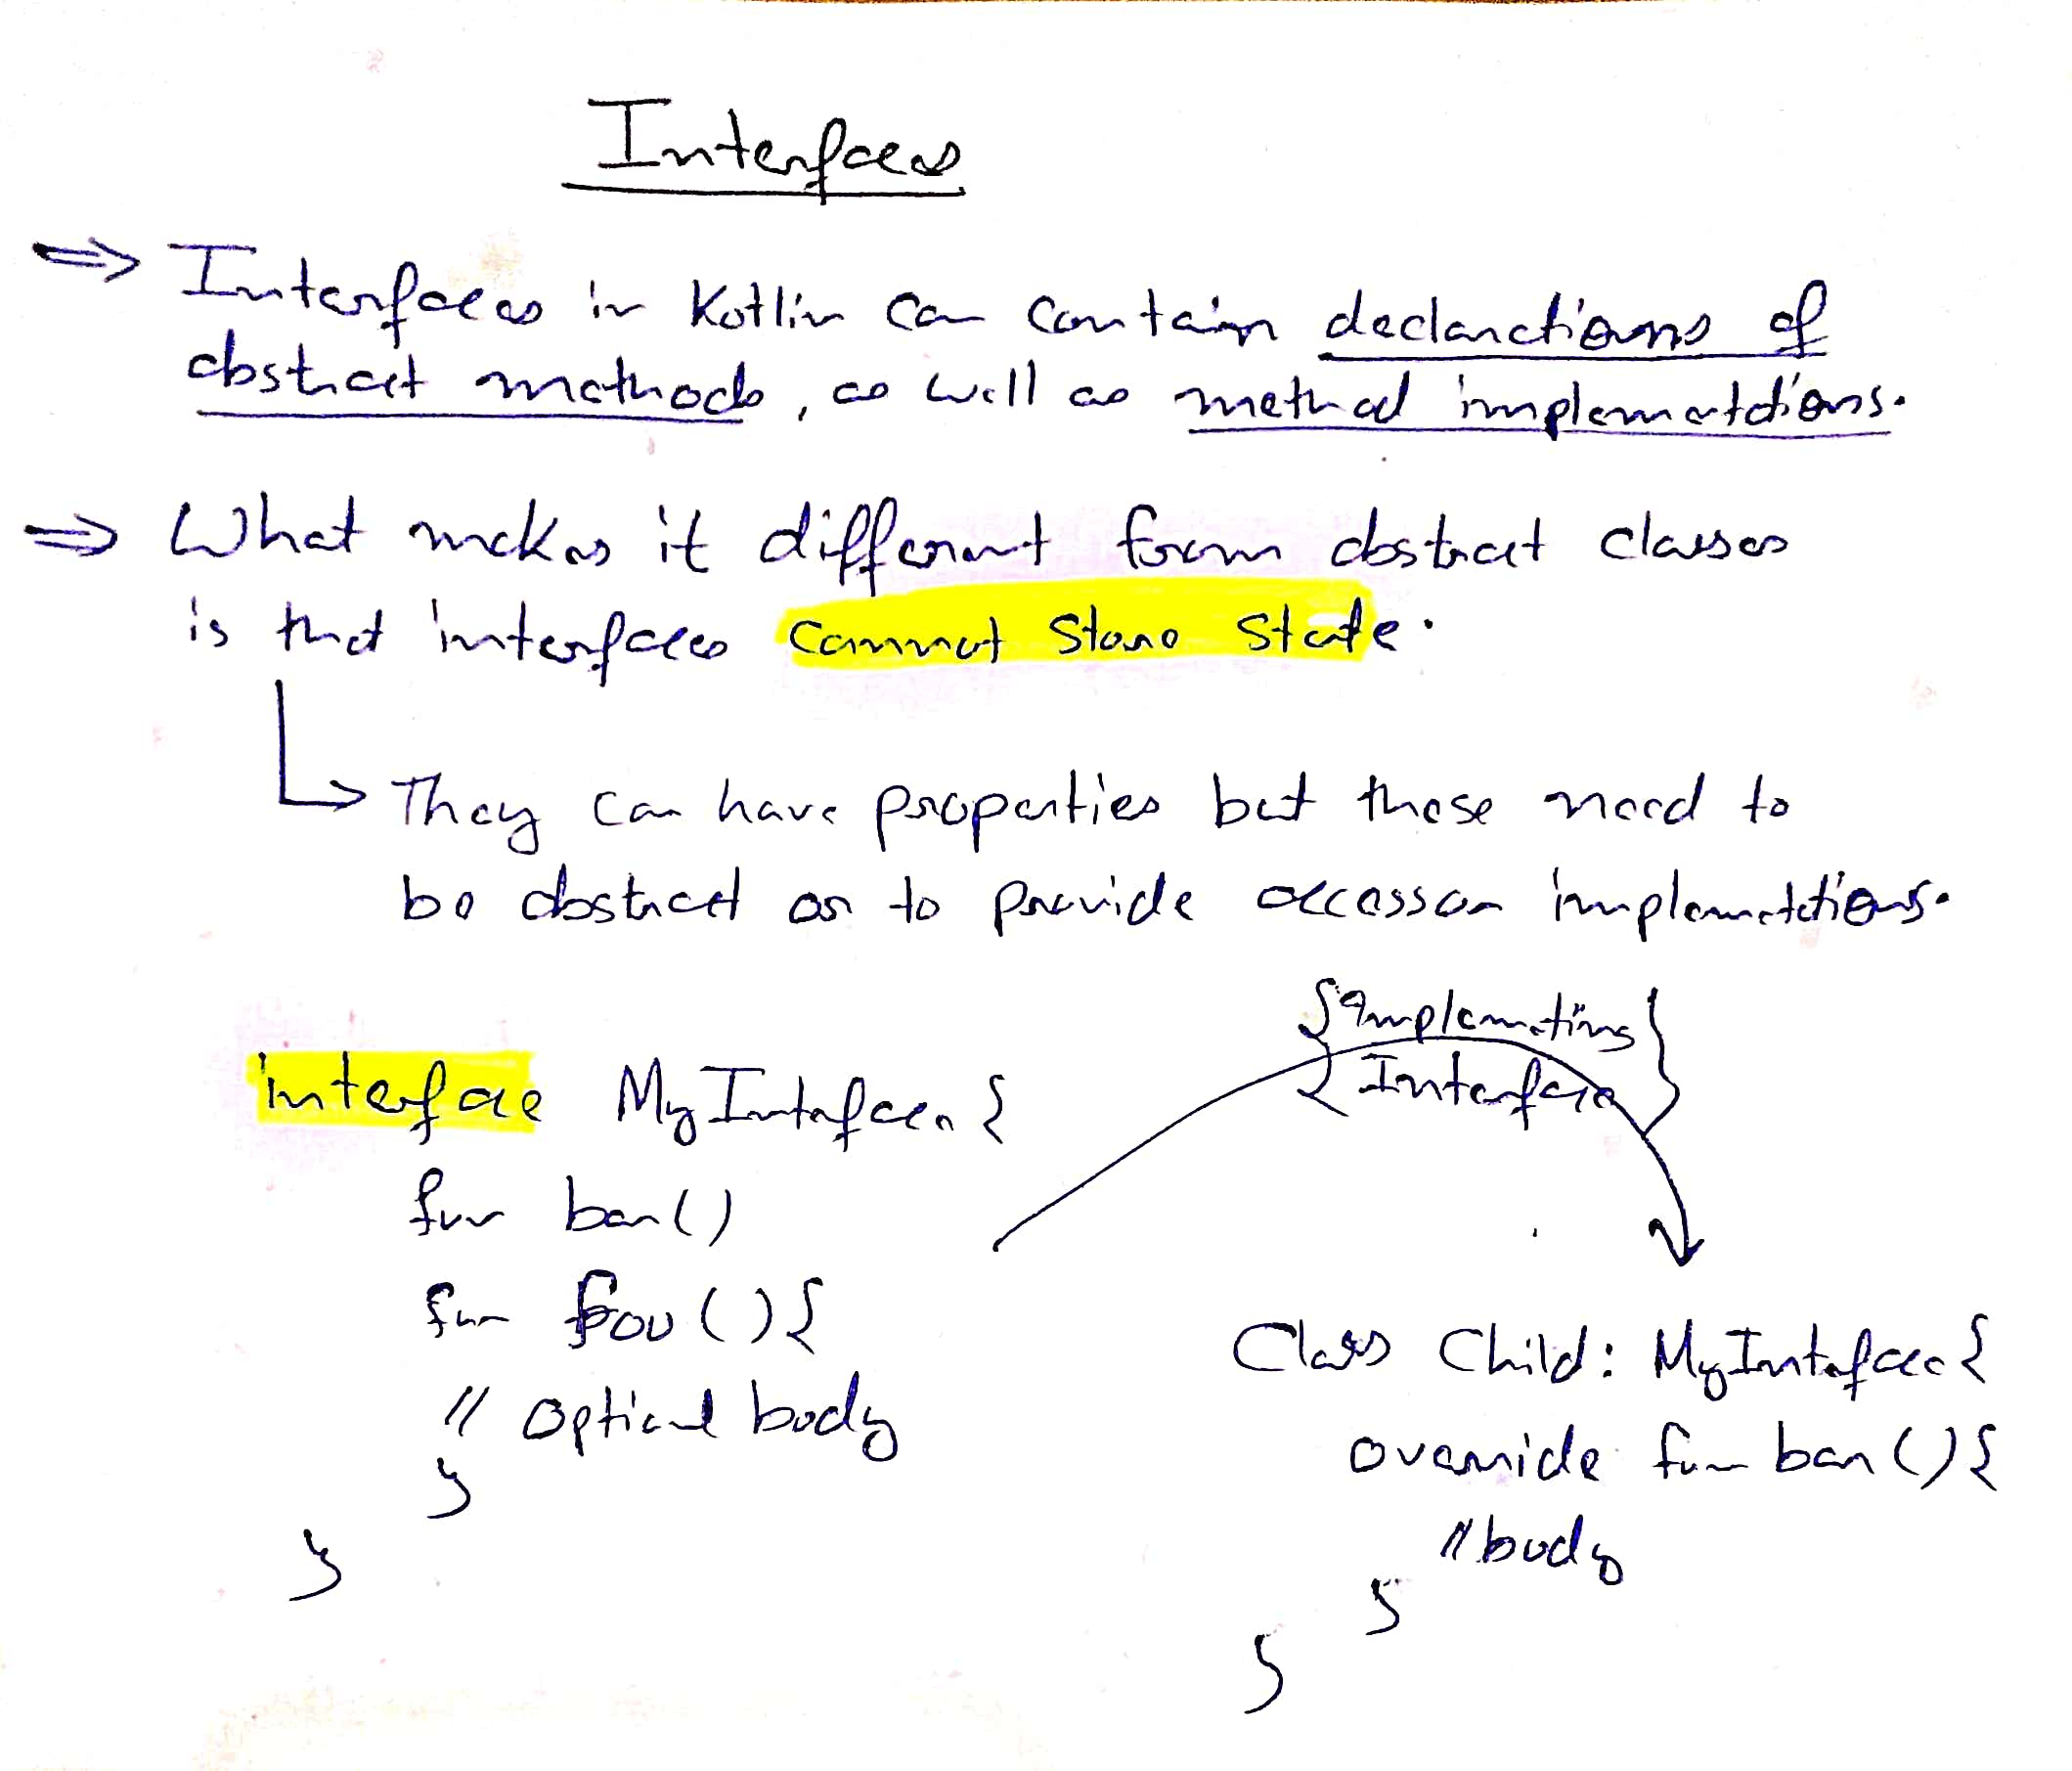 Interfaces
⇒ Interfaces in Kotlin can contain declarations of
abstract methods, as well as method implementations.
⇒ What makes it different form abstract classes
is that interfaces cannot store state.
They can have properties but these need to
be abstract or to provide accessor implementations.
{Implementing
Interface}
interface MyInterface {
fun bar()
fun foo(){
// optional body
}
}
Class Child: MyInterface {
override fun bar(){
// body
}
}